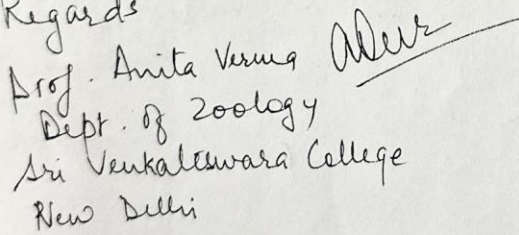 Regards
Prof. Anita Verma
Dept. of Zoology
Sri Venkateswara College
New Delhi